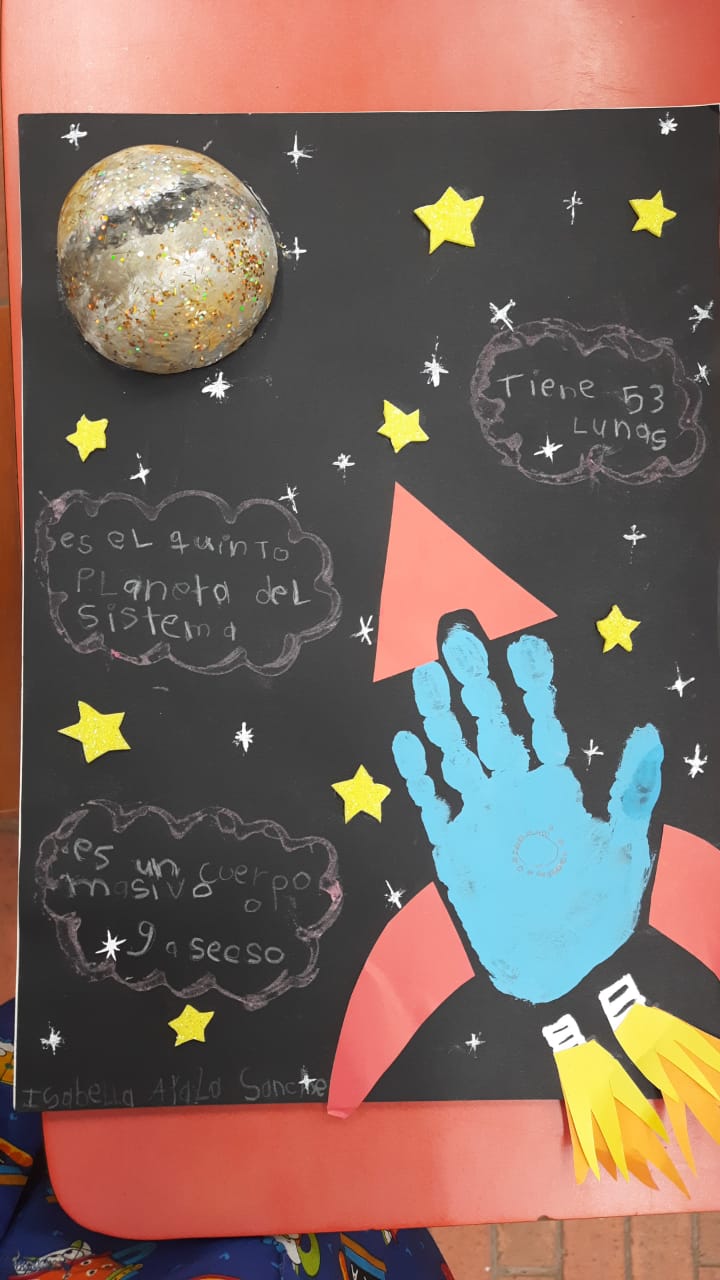 Tiene 53
Lunas
es eL quinto
PLaneta deL
sistema
es un cuerpo
masivo
gaseoso
Isabella